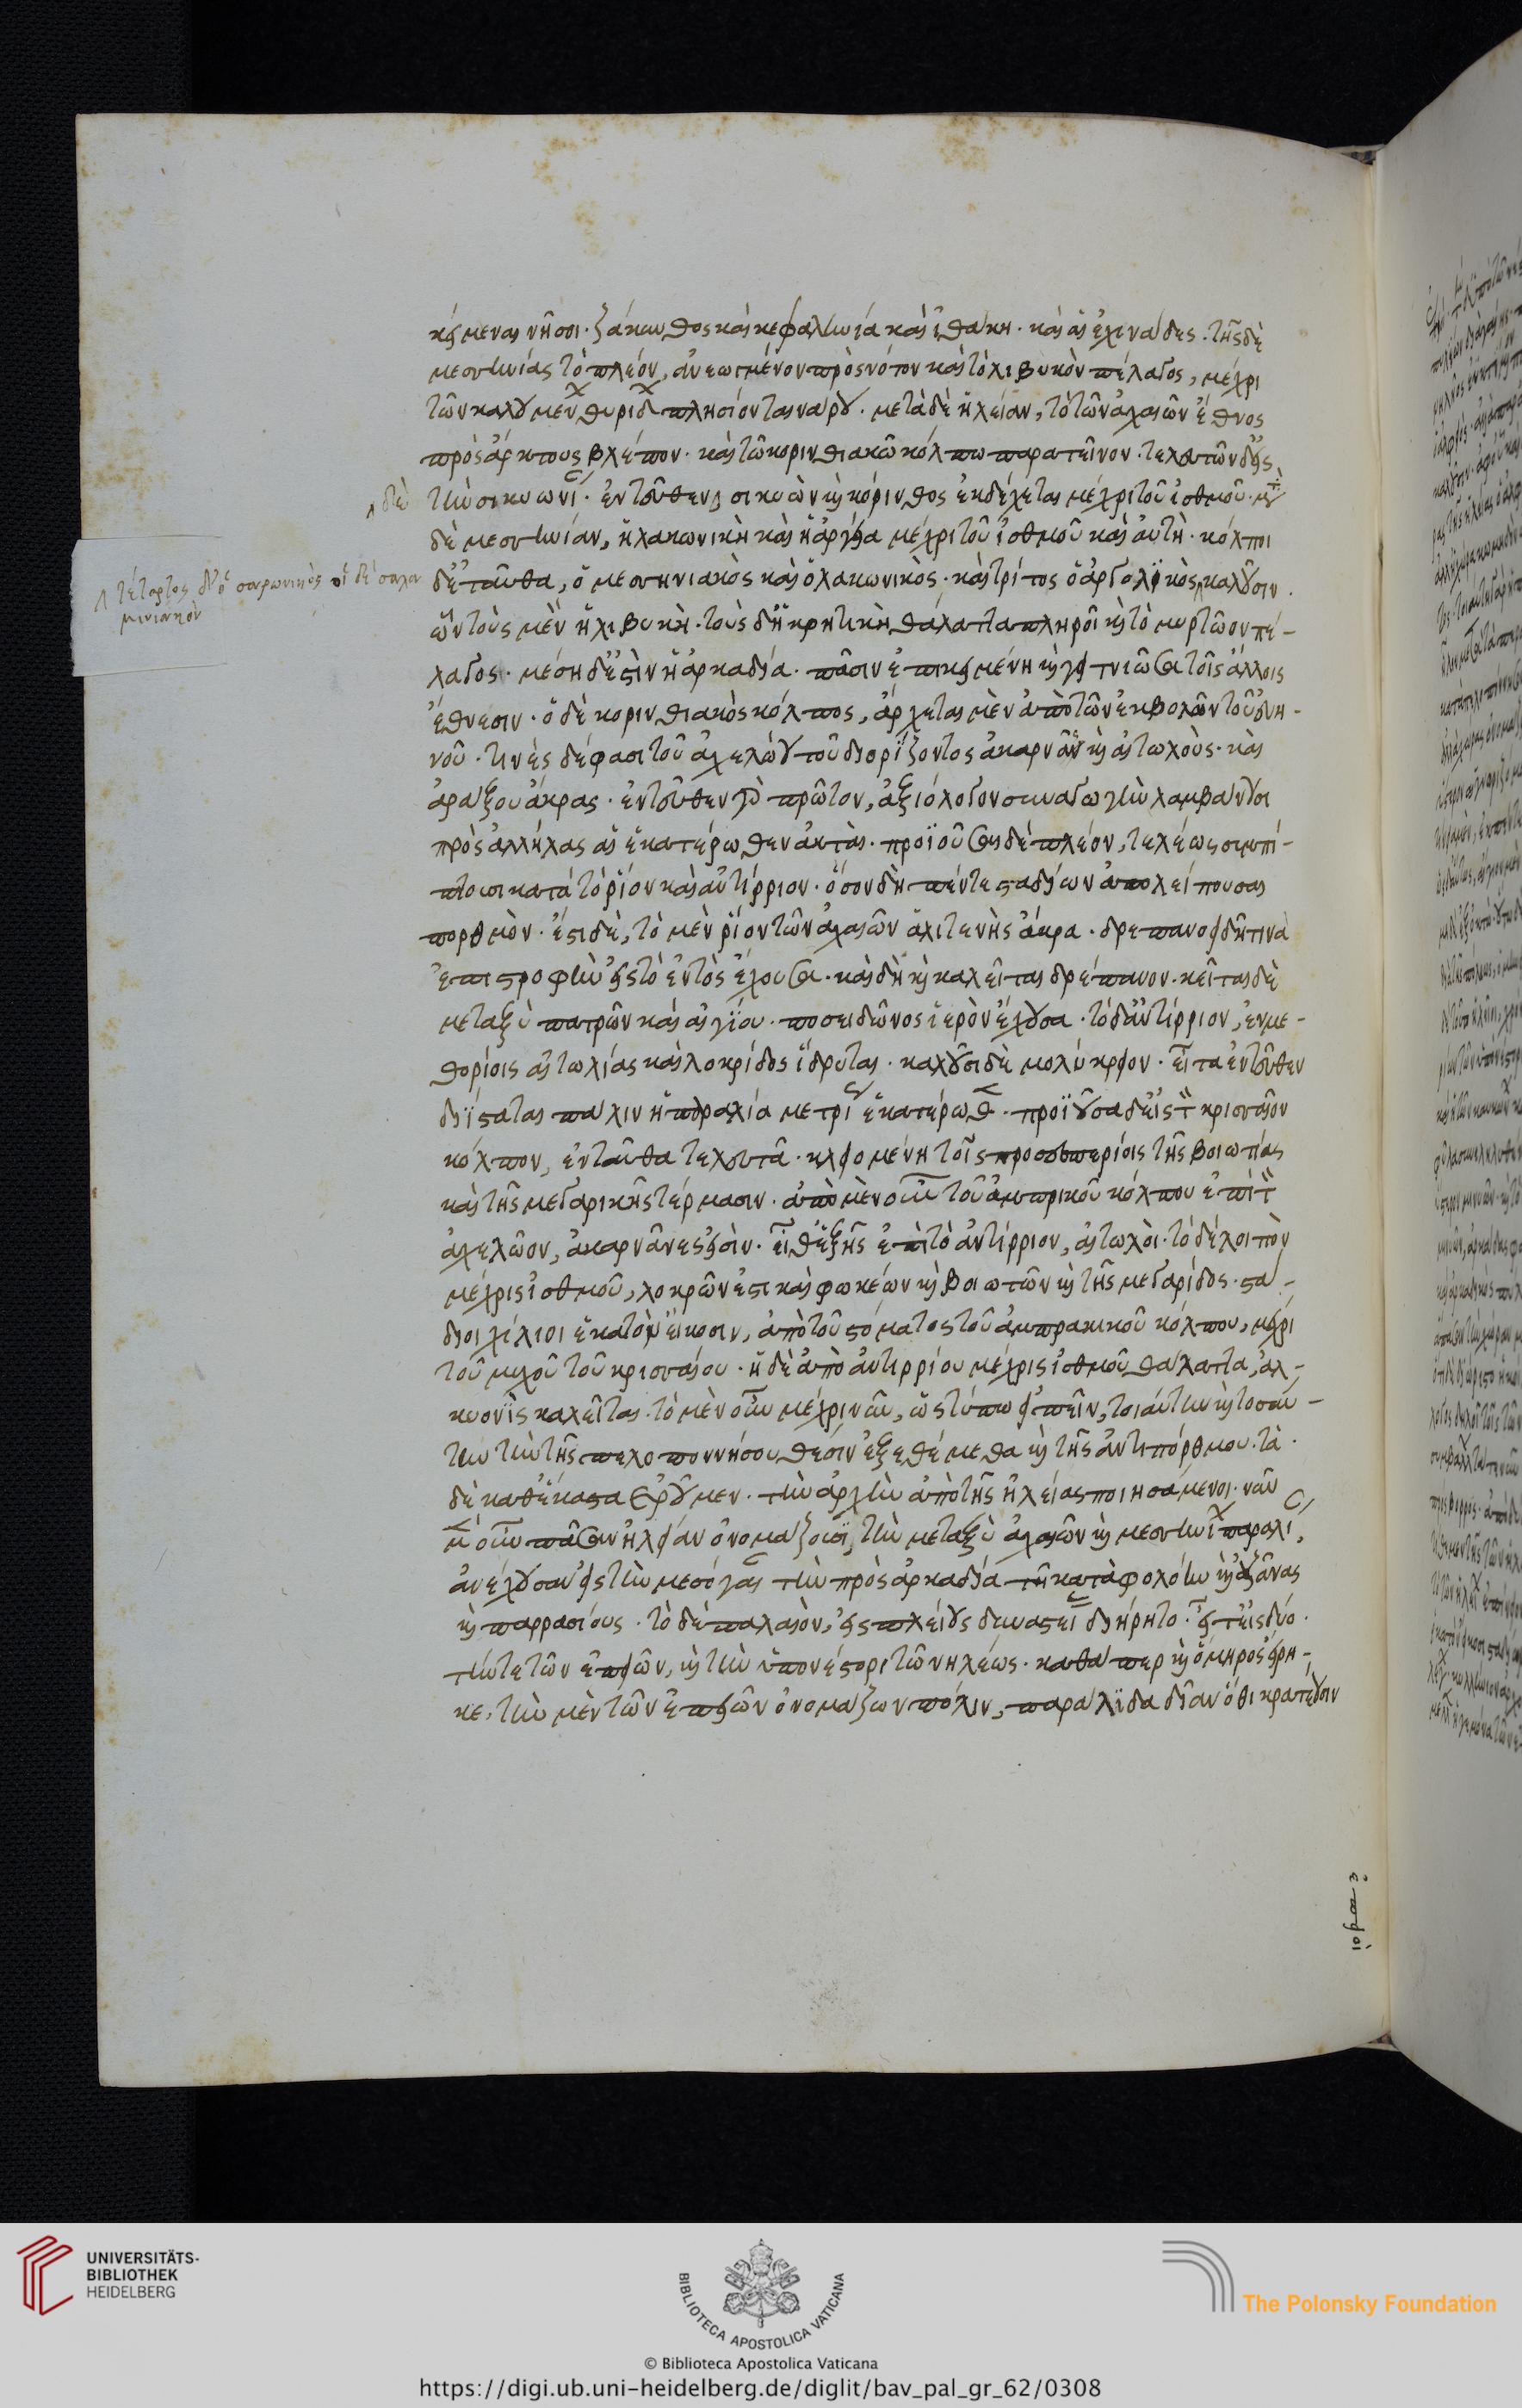 κείμεναι νῆσοι· ζάκυνθος καὶ κεφαλληνία καὶ ἰθάκη· καὶ αἱ ἐχινάδες· τῆς δὲ
μεσσηνίας τὸ πλέον, ἀνεωιγμένον πρὸς νότον καὶ τὸ λιβυκὸν πέλαγος, μέχρι
τῶν καλουμένων θυρίδων πλησίον ταινάρου· μετὰ δὲ ἠλείαν, τὸ τῶν ἀχαιῶν ἔθνος
πρὸς ἄρκτους βλέπον· καὶ τῶ κορινθιακῶ κόλπω παρατεῖνον· τελευτῶν δ' εἰς
τὴν σικυωνίαν· ἐντεῦθεν σικυὼν καὶ κόρινθος ἐκδέχεται μέχρι τοῦ ἰσθμοῦ· μετὰ
δὲ
δὲ μεσσηνίαν, ἡ λακωνικὴ καὶ ἡ ἀργεία μέχρι τοῦ ἰσθμοῦ καὶ αὐτὴ· κόλποι
δ' ἐνταῦθα, ὁ μεσηνιακὸς καὶ ὁ λακωνικὸς· καὶ τρίτος ὁ ἀργολικὸς καλοῦσιν·
τέταρτος δ' ὁ σαρωνικὸς οἱ δὲ σαλα
μινιακὸν
ὧν τοὺς μὲν ἡ λιβυκὴ· τοὺς δ' ἡ κρητικὴ θάλαττα πληροῖ καὶ τὸ μυρτῶον πέ-
λαγος· μέση δ' ἐστὶν ἡ ἀρκαδία· πᾶσιν ἐπικειμένη καὶ γειτνιῶσα τοῖς ἄλλοις
ἔθνεσιν· ὁ δὲ κορινθιακὸς κόλπος, ἄρχεται μὲν ἀπὸ τῶν ἐκβολῶν τοῦ εὐη-
νοῦ· τινὲς δέ φασι τοῦ ἀχελώου τοῦ διορίζοντος ἀκαρνᾶνας καὶ αἰτωλοὺς· καὶ
ἀράξου ἄκρας· ἐντεῦθεν γὰρ πρῶτον, ἀξιόλογον συναγωγὴν λαμβάνουσι
πρὸς ἀλλήλας αἱ ἑκατέρωθεν ἀκτὰς· προϊοῦσαι δὲ πλέον, τελέως συμπί-
πτουσι κατὰ τὸ ῥίον καὶ αντίρριον· ὅσον δὴ πέντε σταδίων ἀπολείπουσαι
πορθμὸν· ἔστι δὲ, τὸ μὲν ῥίον τῶν ἀχαιῶν ἁλιτενὴς ἄκρα· δρεπανοειδῆ τινὰ
ἐπιστροφὴν εἰς τὸ ἐντὸς ἔχουσα· καὶ δὴ καὶ καλεῖται δρέπανον· κεῖται δὲ
μεταξὺ πατρῶν καὶ αἰγίου· ποσειδῶνος ἱερὸν ἔχουσα· τὸ δ' ἀντίρριον, ἐν με-
θορίοις αἰτωλίας καὶ λοκρίδος ἵδρυται· καλοῦσι δὲ μολύκρειον· εἶτα ἐντεῦθεν
διίσταται πάλιν ἡ παραλία μετρίως ἑκατέρωθεν· προϊοῦσα δ' εἰς τὸν κρισσαῖον
κόλπον, ἐνταῦθα τελευτᾶ· κλειομένη τοῖς προσεσπερίοις τῆς βοιωτίας
καὶ τῆς μεγαρικῆς τέρμασιν· ἀπὸ μὲν οὖν τοῦ ἀμπρικοῦ κόλπου ἐπὶ τὸν
ἀχελῶον, ἀκαρνᾶνες εἰσὶν· εἶθ' ἑξῆς ἐπὶ τὸ ἀντίρριον, αἰτωλοὶ· τὸ δὲ λοιπὸν
μέχρις ἰσθμοῦ, λοκρῶν ἐστι καὶ φωκέων καὶ βοιωτῶν καὶ τῆς μεγαρίδος· στά-
διοι χίλιοι ἑκατὸν εἴκοσιν, ἀπὸ τοῦ στόματος τοῦ ἀμπρακικοῦ κόλπου, μέχρι
τοῦ μυχοῦ τοῦ κρισσαίου· ἡ δὲ ἀπὸ ἀντιρρίου μέχρις ἰσθμοῦ θάλαττα, ἀλ-
κυονὶς καλεῖται· τὸ μὲν οὖν μέχρι νῦν, ὡς τύπω εἰπεῖν, τοιαύτην καὶ τοσαύ-
την τὴν τῆς πελοποννήσου θέσιν ἐξεθέμεθα καὶ τῆς ἀντιπόρθμου· τὰ
δὲ καθέκαστα ἐροῦμεν· τὴν ἀρχὴν ἀπὸ τῆς ἠλείας ποιησάμενοι· νῦν
μὲν οὖν πᾶσαν ἠλείαν ὀνομάζουσι, τὴν μεταξὺ ἀχαιῶν καὶ μεσσηνίων παραλίαν,
ἀνέχουσαν εἰς τὴν μεσόγαιαν τὴν πρὸς ἀρκαδία τῆ κατὰ φολόην καὶ ἀζᾶνας
καὶ παρρασίους· τὸ δὲ παλαιὸν, εἰς πλείους δυναστείας διήρητο· εἶτ' εἰς δύο·
τήν τε τῶν ἐπειῶν, καὶ τὴν ὑπονέστορι τῶ νηλέως· καθάπερ καὶ ὅμηρος εἴρη-
κε, τὴν μὲν τῶν ἐπειῶν ὀνομάζων πόλιν, παρ' ἄλιδα δῖαν ὅθι κρατέουσιν
UNIVERSITÄTS-
BIBLIOTHEK
HEIDELBERG
BIBLIOTECA APOSTOLICA VATICANA
© Biblioteca Apostolica Vaticana
The Polonsky Foundation
https://digi.ub.uni-heidelberg.de/diglit/bav_pal_gr_62/0308